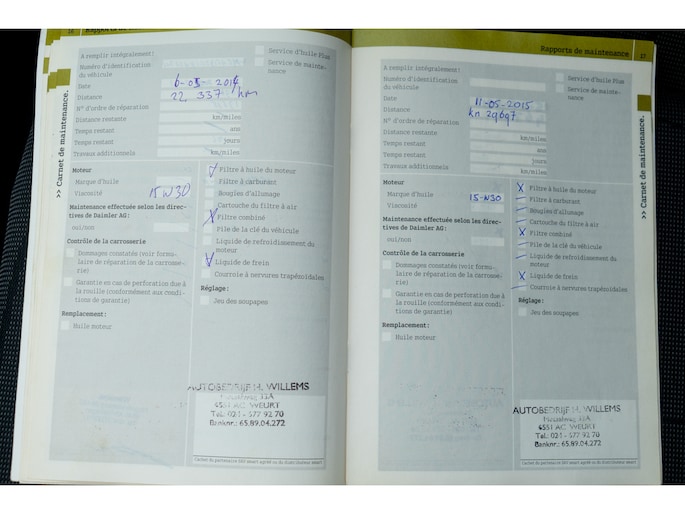 16
Rapports de
>> Carnet de maintenance.
A remplir intégralement :
Numéro d'identification
du véhicule
Date
6-05-2014
Distance
22 337 km
N° d'ordre de réparation
Distance restante
km/miles
Temps restant
ans
Temps restant
jours
Travaux additionnels
km/miles
Service d'huile Plus
Service de mainte-
nance
Moteur
Marque d'huile
Viscosité
15W30
Maintenance effectuée selon les direc-
tives de Daimler AG :
oui/non
Contrôle de la carrosserie
Dommages constatés (voir formu-
laire de réparation de la carrosse-
rie)
Garantie en cas de perforation due à
la rouille (conformément aux condi-
tions de garantie)
Remplacement :
Huile moteur
Filtre à huile du moteur
Filtre à carburant
Bougies d'allumage
Cartouche du filtre à air
X Filtre combiné
Pile de la clé du véhicule
Liquide de refroidissement du
moteur
Liquide de frein
Courroie à nervures trapézoïdales
Réglage :
Jeu des soupapes
AUTOBEDRIJF H. WILLEMS
6551 AC WEURT
Tel.: 024 - 577 92 70
Banknr.: 65.89.04.272
Cachet du partenaire SAV smart agréé ou du distributeur smart
Rapports de maintenance.
17
>> Carnet de maintenance.
A remplir intégralement :
Numéro d'identification
du véhicule
Date
11-05-2015
Distance
km 29697
N° d'ordre de réparation
Distance restante
km/miles
Temps restant
ans
Temps restant
jours
Travaux additionnels
km/miles
Service d'huile Plus
Service de mainte-
nance
Moteur
Marque d'huile
Viscosité
15-W30
Maintenance effectuée selon les direc-
tives de Daimler AG :
oui/non
Contrôle de la carrosserie
Dommages constatés (voir formu-
laire de réparation de la carrosse-
rie)
Garantie en cas de perforation due à
la rouille (conformément aux condi-
tions de garantie)
Remplacement :
Huile moteur
X Filtre à huile du moteur
Filtre à carburant
Bougies d'allumage
Cartouche du filtre à air
X Filtre combiné
Pile de la clé du véhicule
Liquide de refroidissement du
moteur
X Liquide de frein
Courroie à nervures trapézoïdales
Réglage :
Jeu des soupapes
AUTOBEDRIJF H. WILLEMS
6551 AC WEURT
Tel.: 024 - 577 92 70
Banknr.: 65.89.04.272
Cachet du partenaire SAV smart agréé ou du distributeur smart